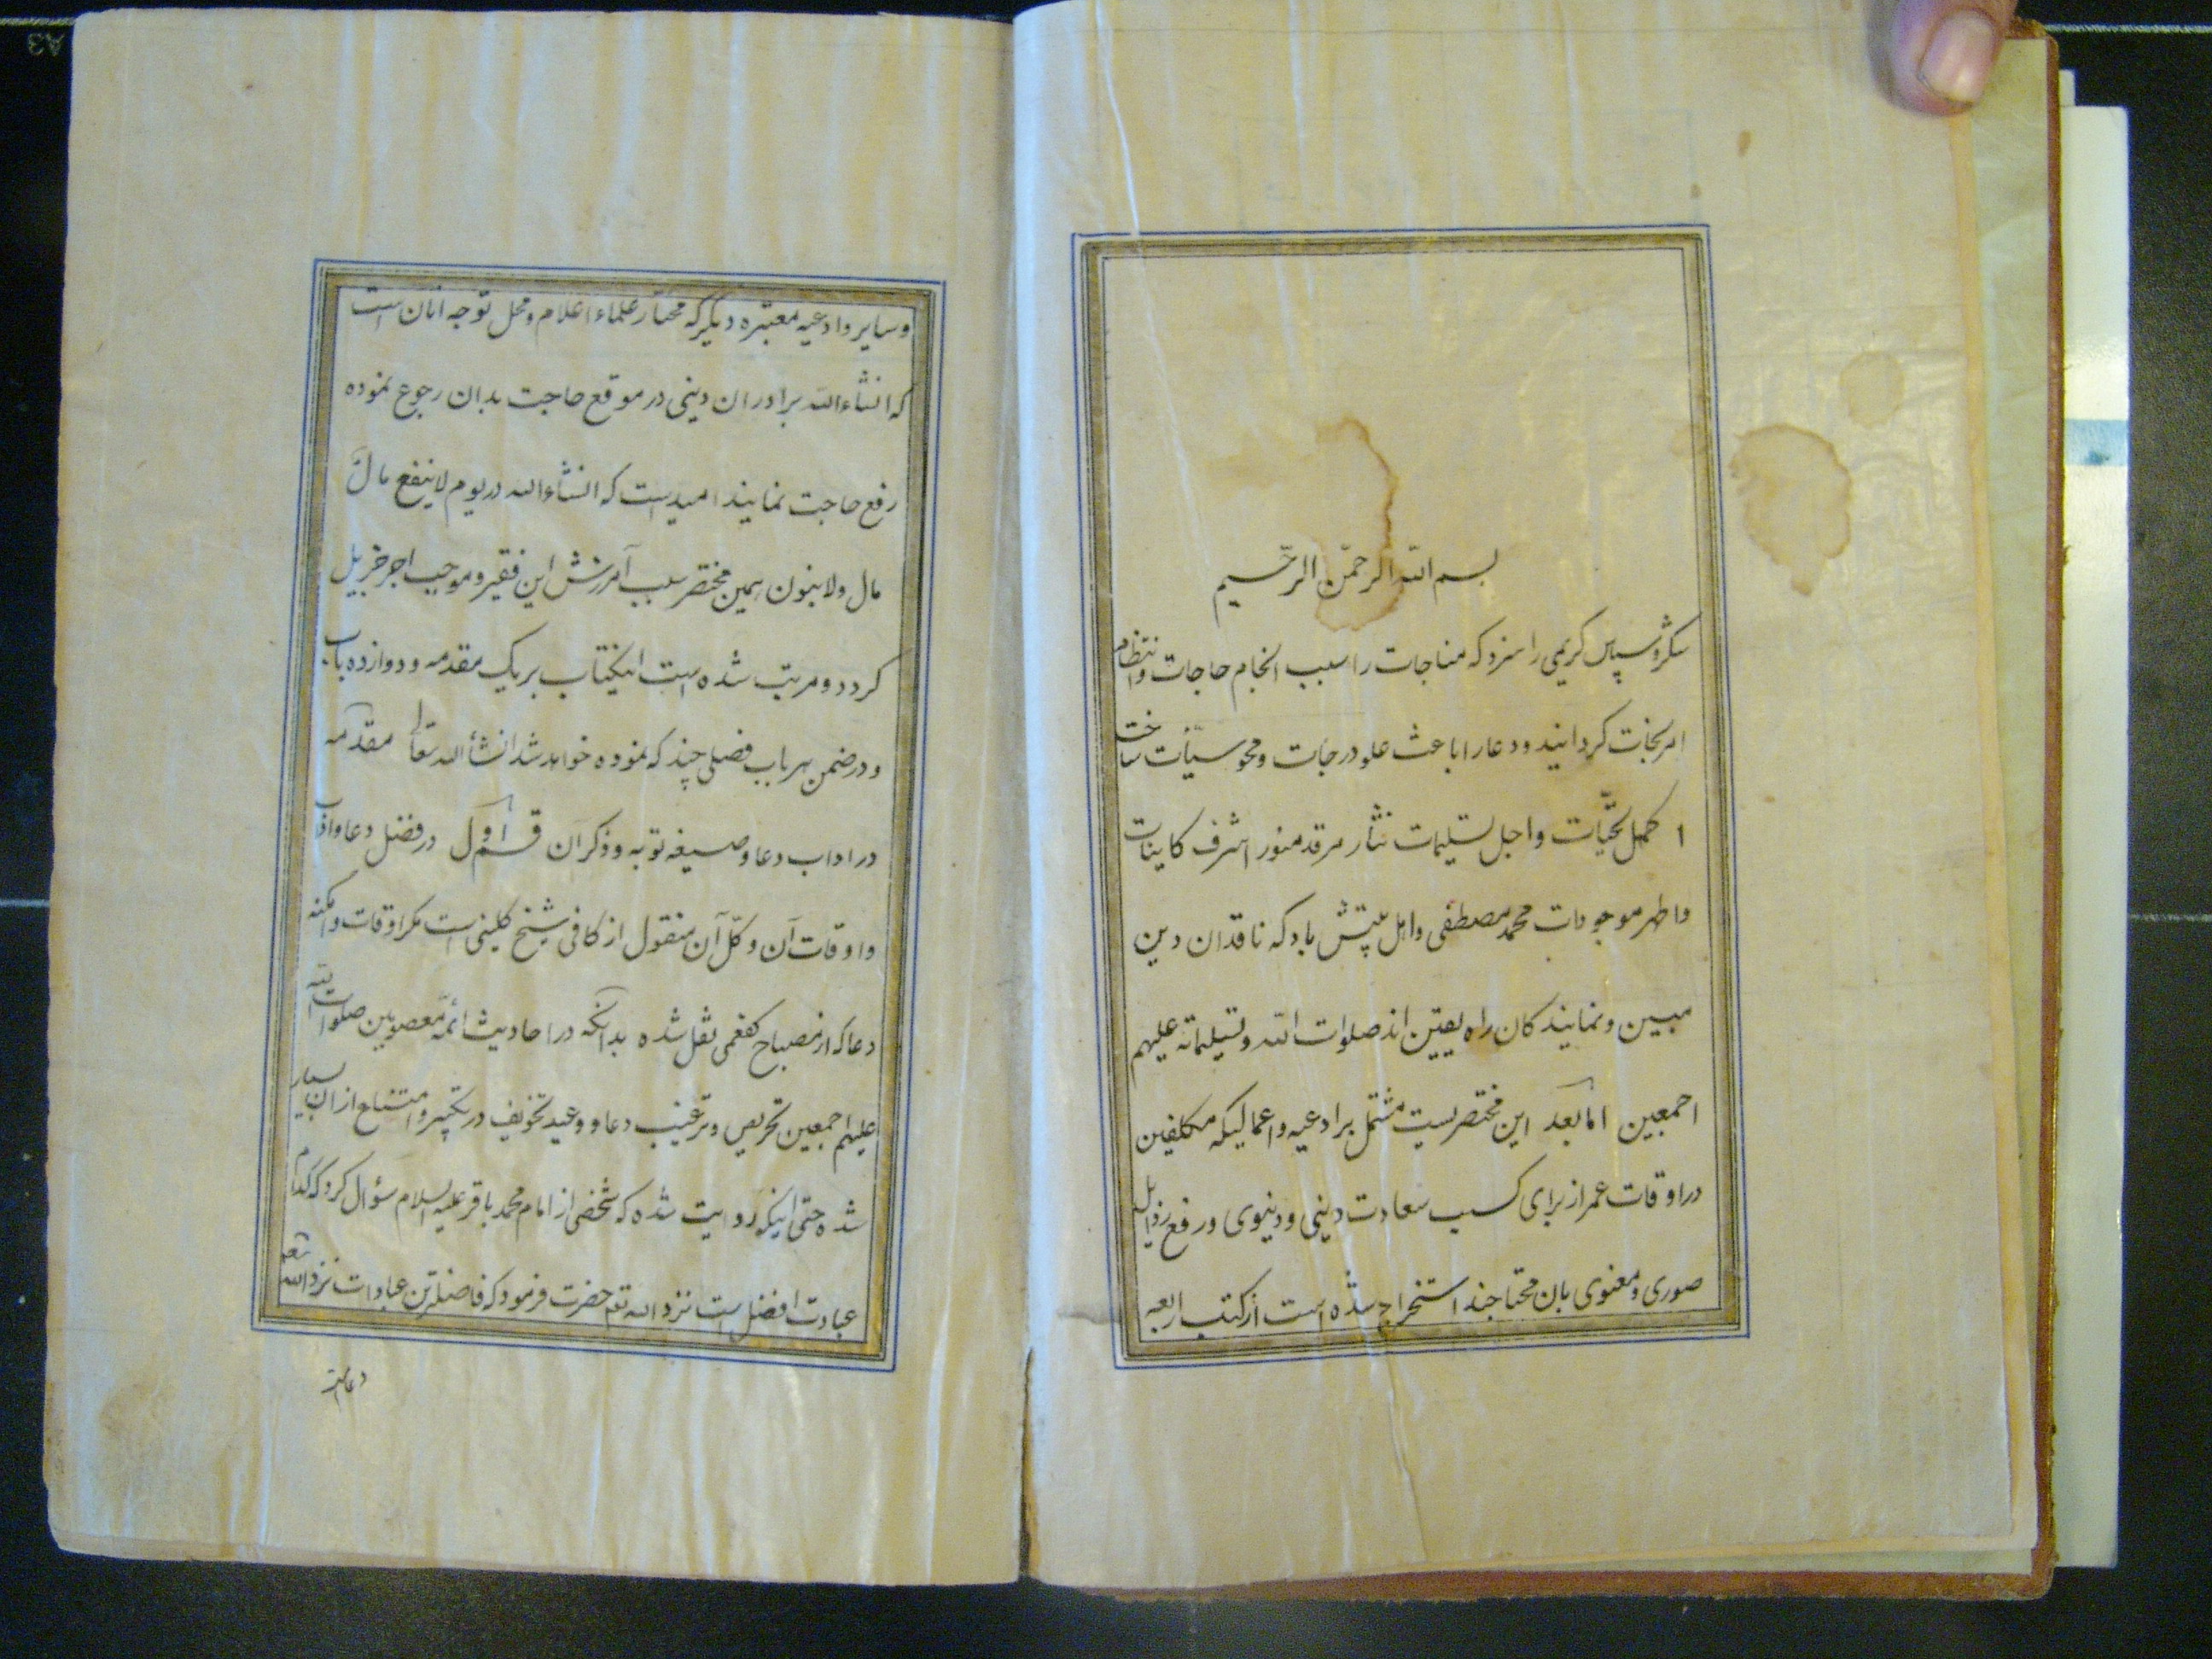 بسم الله الرحمن الرحیم
شکر و سپاس کریمی را سزد که مناجات را سبب انجام حاجات و انتظام
امر نجات کردانیند و دعا را باعث علو درجات و محو سیّأت ساخت
اکمل تحیّات و اجل تسلیمات نثار مرقد منور اشرف کاینات
و اطهر موجودات محمد مصطفی و اهل بیتش باد که ناقدان دین
مبین و نمایندکان راه یقین اند صلوات الله و تسلیماته علیهم
اجمعین امّا بعد این مختصریست مشتمل بر ادعیه و اعمالیکه مکلفین
در اوقات عمر از برای کسب سعادت دینی و دنیوی و رفع رذایل
صوری و معنوی بان محتاجند استخراج شده است از کتب اربعه
و سایر و ادعیه معتبره دیکر که مختار علماء اعلام و محل توجه انان است
که انشاء الله برادران دینی در موقع حاجت بدان رجوع نموده
رفع حاجت نمایند امید است که انشاء الله در یوم لا ینفع مالَ
مال و لا بنون همین مختصر سبب آمرزش این فقیر و موجب اجر جزیل
کردد و مرتب شده است اینکتاب بر یک مقدمه و دوازده باب
و در ضمن هر باب فصلی چند که نموده خواهد شد انشأ الله تعالی مقدمه
در اداب دعا و صیغه توبه و ذکر آن قسم اول در فضل دعا و اداب
و اوقات آن و کلّ آن منقول از کافی شیخ کلینی است مکر اوقات و امکنه
دعا که از مصباح کفعمی نقل شده بدانکه در احادیث ائمّه معصومین صلوات الله
علیهم اجمعین تحریص و ترغیب دعا و وعید تخویف در تکبر و امتناع از ان بسیار
شده حتی اینکه روایت شده که شخصی از امام محمد باقر علیه السلام سؤال کرد که کدام
عبادت افضل است نزد الله تعم حضرت فرمود که فاضلترین عبادات نزد الله تعم
دعاست